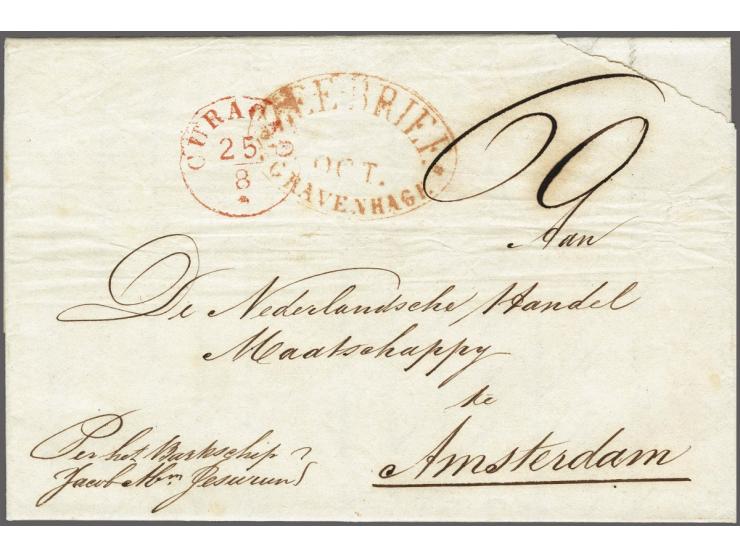 CURAÇ
25
8
ZEE BRIEF.
OCT.
GRAVENHAGE
60
Aan
De Nederlandsche Handel
Maatschappy
te
Amsterdam
Per het Barkschip
Jacob Mn. Jesurun